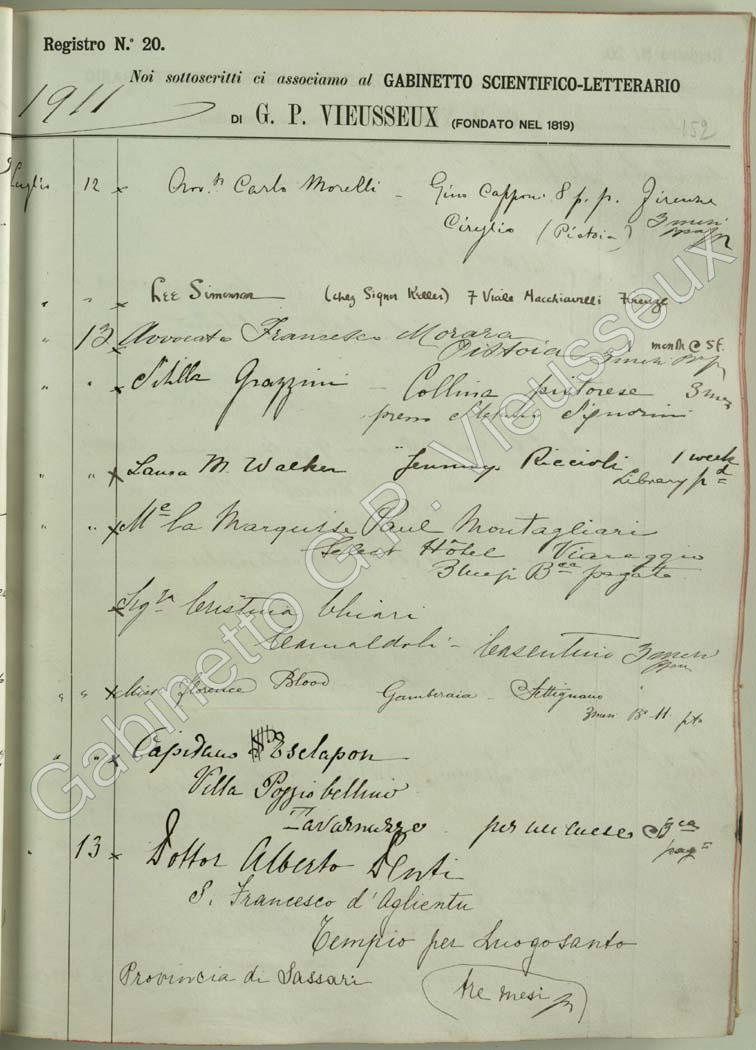 Registro N.º 20.
Noi sottoscritti ci associamo al GABINETTO SCIENTIFICO-LETTERARIO
1911
DI G. P. VIEUSSEUX (FONDATO NEL 1819)
152
Luglio 12 x Avv.to Carlo Morelli - Gino Capponi 8 p. p. Firenze
Cireglio (Pistoia) 3 mesi
" " x Lee Simonson (chez Signor Keller) 7 Viale Macchiavelli Firenze
" 13 x Avvocato Francesco Morara month @ 5f.
Pistoia 3 mesi
" " x Stella Grazzini - Collina pistorese 3 mesi
presso Signorini
" " x Laura M. Walker Jennings Riccioli 1 week
Library pd
" " x Me la Marquise Paul Montagliari
Select Hôtel Viareggio
3 mesi Bca pagato
Sigra Cristina Chiari
Camaldoli - Casentino 3 mesi
" " x Miss Florence Blood Gamberaia - Settignano
3 mesi Bca 11 pto
" " x Capitano Esclapon
Villa Poggiobellino
Tavarnuzze per un mese Bca
pag=
" 13 x Dottor Alberto Denti
S. Francesco d'Aglientu
Tempio per Luogosanto
Provincia di Sassari
tre mesi
Gabinetto G.P. Vieusseux